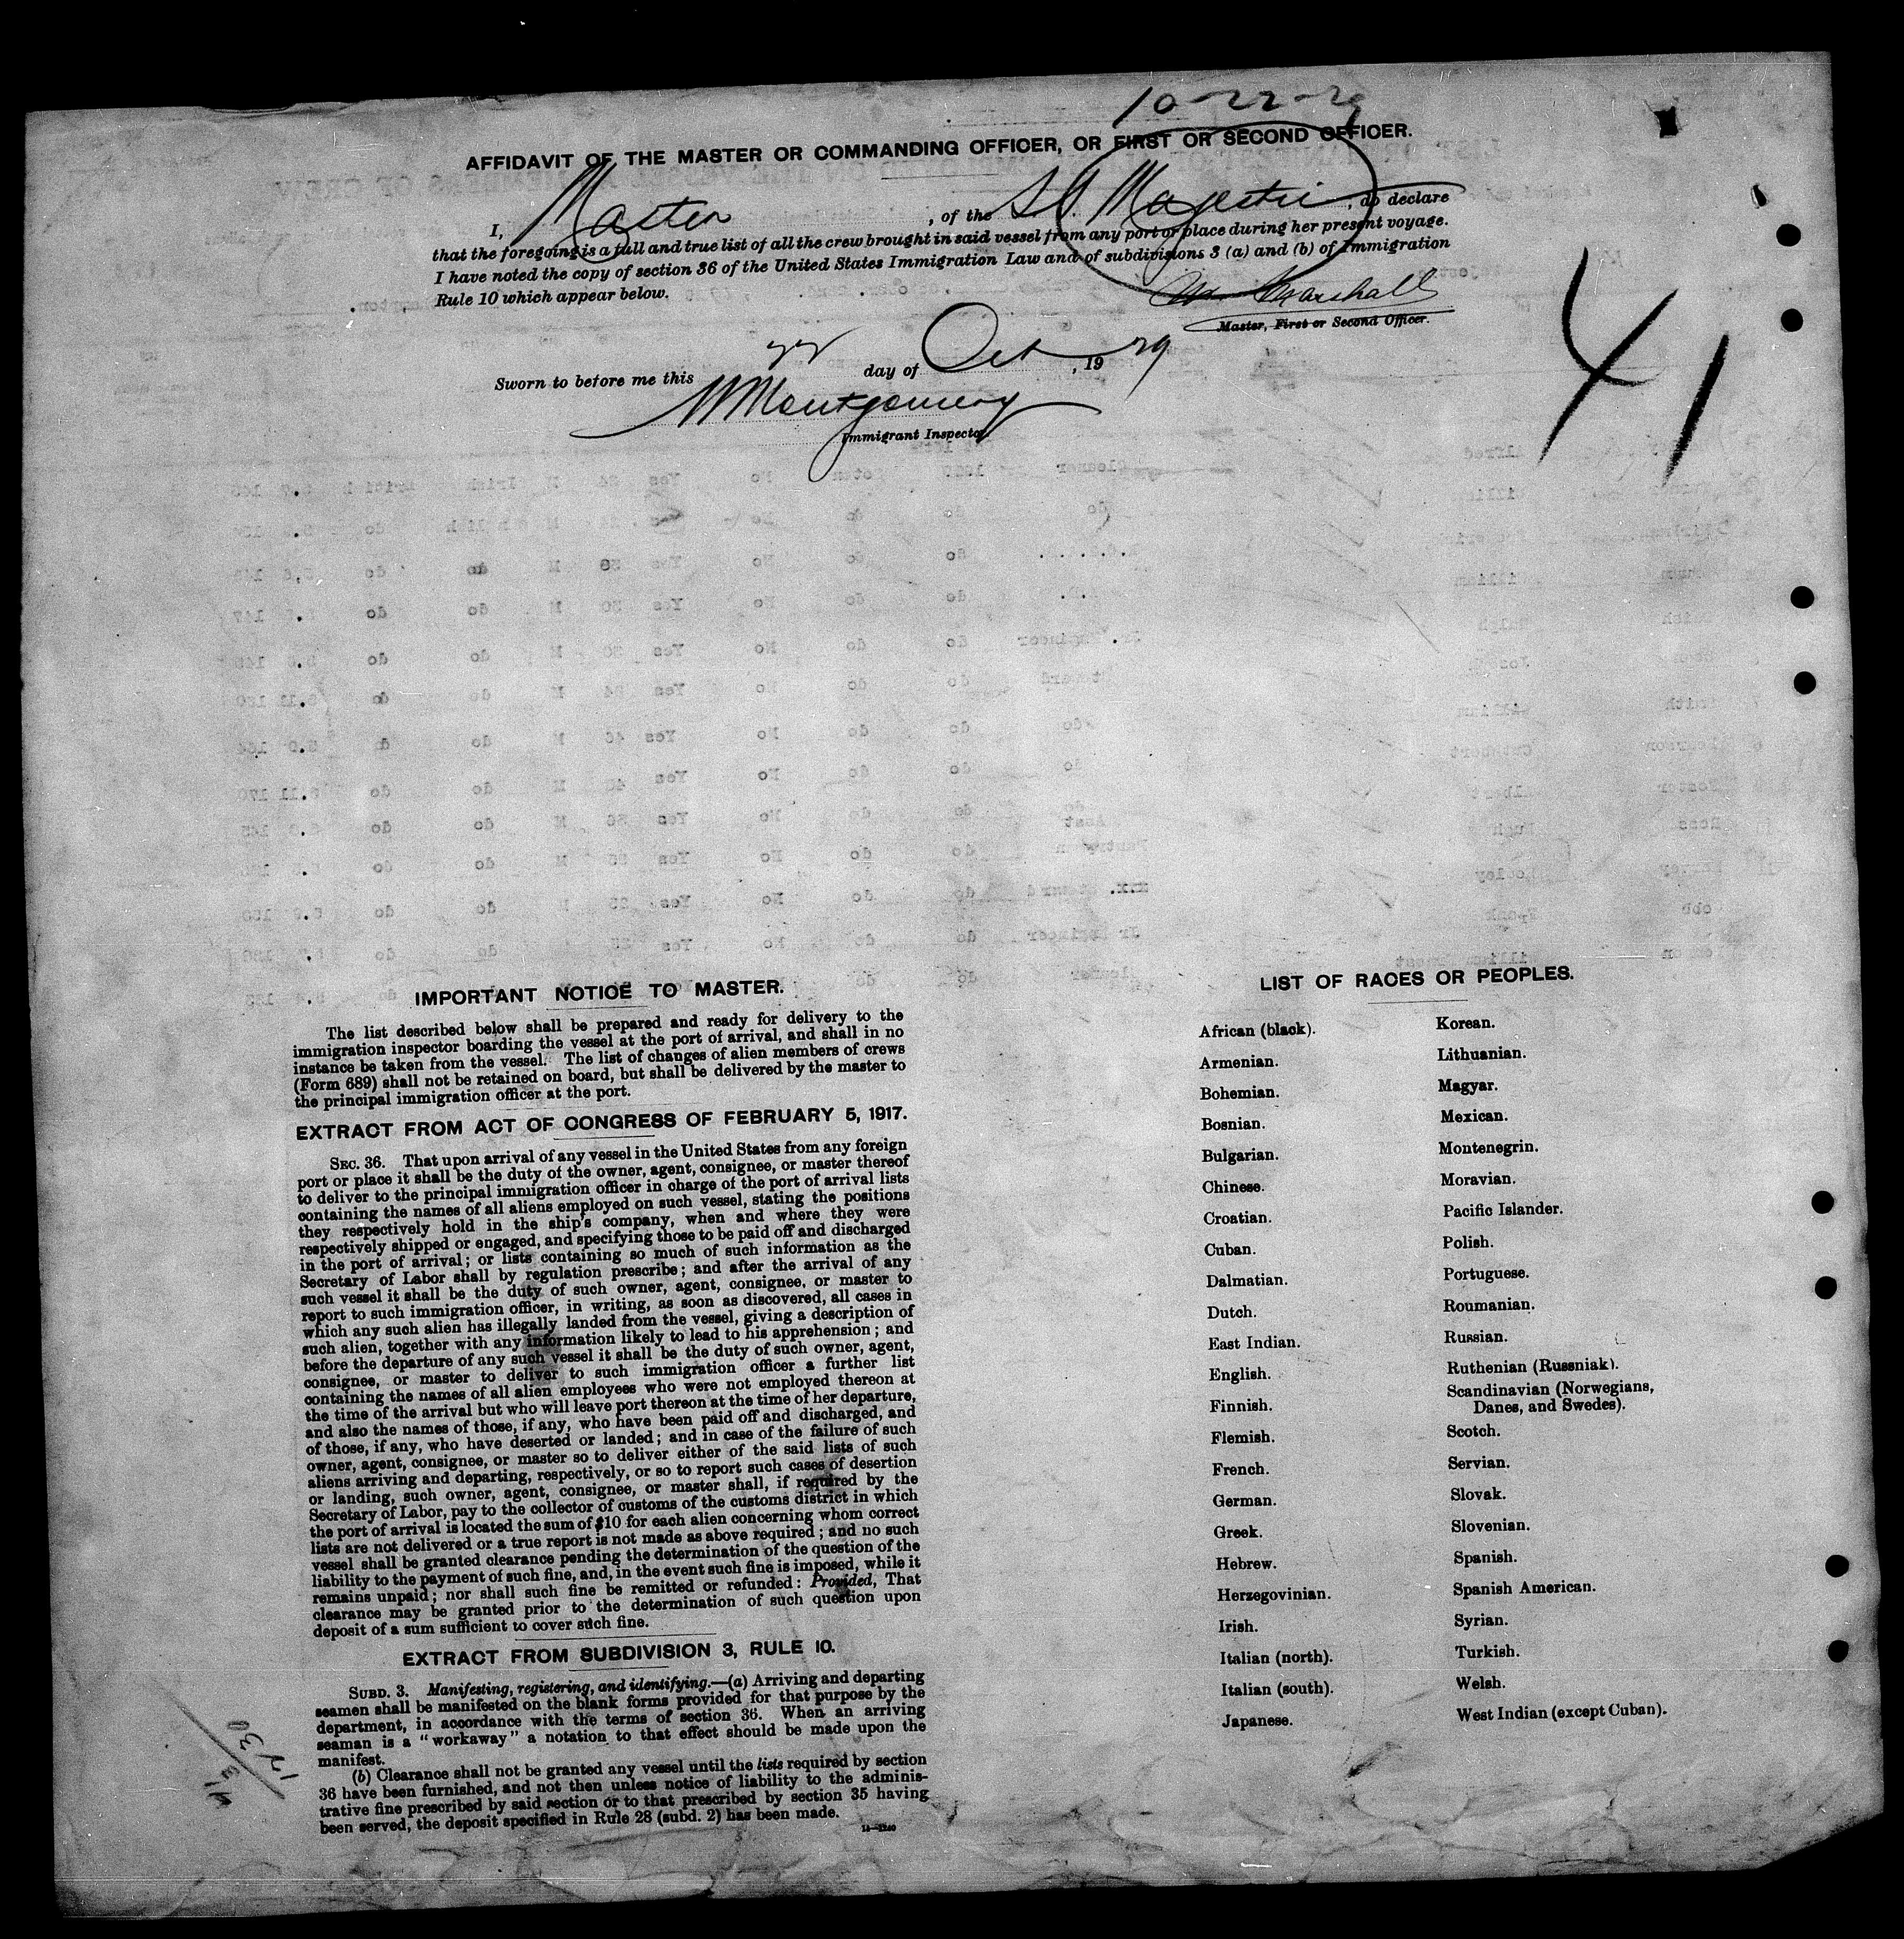 10-22-29
AFFIDAVIT OF THE MASTER OR COMMANDING OFFICER, OR FIRST OR SECOND OFFICER.
I, Master, of the SS. Majestic, do declare
that the foregoing is a full and true list of all the crew brought in said vessel from any port or place during her present voyage.
I have noted the copy of section 36 of the United States Immigration Law and of subdivisions 3 (a) and (b) of Immigration
Rule 10 which appear below.
Marshall
Master, First or Second Officer.
41
Sworn to before me this 22 day of Oct, 1929
Montgomery
Immigrant Inspector.
IMPORTANT NOTICE TO MASTER.
The list described below shall be prepared and ready for delivery to the
immigration inspector boarding the vessel at the port of arrival, and shall in no
instance be taken from the vessel. The list of changes of alien members of crews
(Form 689) shall not be retained on board, but shall be delivered by the master to
the principal immigration officer at the port.
EXTRACT FROM ACT OF CONGRESS OF FEBRUARY 5, 1917.
SEC. 36. That upon arrival of any vessel in the United States from any foreign
port or place it shall be the duty of the owner, agent, consignee, or master thereof
to deliver to the principal immigration officer in charge of the port of arrival lists
containing the names of all aliens employed on such vessel, stating the positions
they respectively hold in the ship's company, when and where they were
respectively shipped or engaged, and specifying those to be paid off and discharged
in the port of arrival; or lists containing so much of such information as the
Secretary of Labor shall by regulation prescribe; and after the arrival of any
such vessel it shall be the duty of such owner, agent, consignee, or master to
report to such immigration officer, in writing, as soon as discovered, all cases in
which any such alien has illegally landed from the vessel, giving a description of
such alien, together with any information likely to lead to his apprehension; and
before the departure of any such vessel it shall be the duty of such owner, agent,
consignee, or master to deliver to such immigration officer a further list
containing the names of all alien employees who were not employed thereon at
the time of the arrival but who will leave port thereon at the time of her departure,
and also the names of those, if any, who have been paid off and discharged, and
of those, if any, who have deserted or landed; and in case of the failure of such
owner, agent, consignee, or master so to deliver either of the said lists of such
aliens arriving and departing, respectively, or so to report such cases of desertion
or landing, such owner, agent, consignee, or master shall, if required by the
Secretary of Labor, pay to the collector of customs of the customs district in which
the port of arrival is located the sum of $10 for each alien concerning whom correct
lists are not delivered or a true report is not made as above required; and no such
vessel shall be granted clearance pending the determination of the question of the
liability to the payment of such fine, and, in the event such fine is imposed, while it
remains unpaid; nor shall such fine be remitted or refunded: Provided, That
clearance may be granted prior to the determination of such question upon
deposit of a sum sufficient to cover such fine.
EXTRACT FROM SUBDIVISION 3, RULE 10.
SUBD. 3. Manifesting, registering, and identifying.—(a) Arriving and departing
seamen shall be manifested on the blank forms provided for that purpose by the
department, in accordance with the terms of section 36. When an arriving
seaman is a "workaway" a notation to that effect should be made upon the
manifest.
(b) Clearance shall not be granted any vessel until the lists required by section
36 have been furnished, and not then unless notice of liability to the adminis-
trative fine prescribed by said section or to that prescribed by section 35 having
been served, the deposit specified in Rule 28 (subd. 2) has been made.
LIST OF RACES OR PEOPLES.
African (black).
Armenian.
Bohemian.
Bosnian.
Bulgarian.
Chinese.
Croatian.
Cuban.
Dalmatian.
Dutch.
East Indian.
English.
Finnish.
Flemish.
French.
German.
Greek.
Hebrew.
Herzegovinian.
Irish.
Italian (north).
Italian (south).
Japanese.
Korean.
Lithuanian.
Magyar.
Mexican.
Montenegrin.
Moravian.
Pacific Islander.
Polish.
Portuguese.
Roumanian.
Russian.
Ruthenian (Russniak).
Scandinavian (Norwegians,
Danes, and Swedes).
Scotch.
Servian.
Slovak.
Slovenian.
Spanish.
Spanish American.
Syrian.
Turkish.
Welsh.
West Indian (except Cuban).